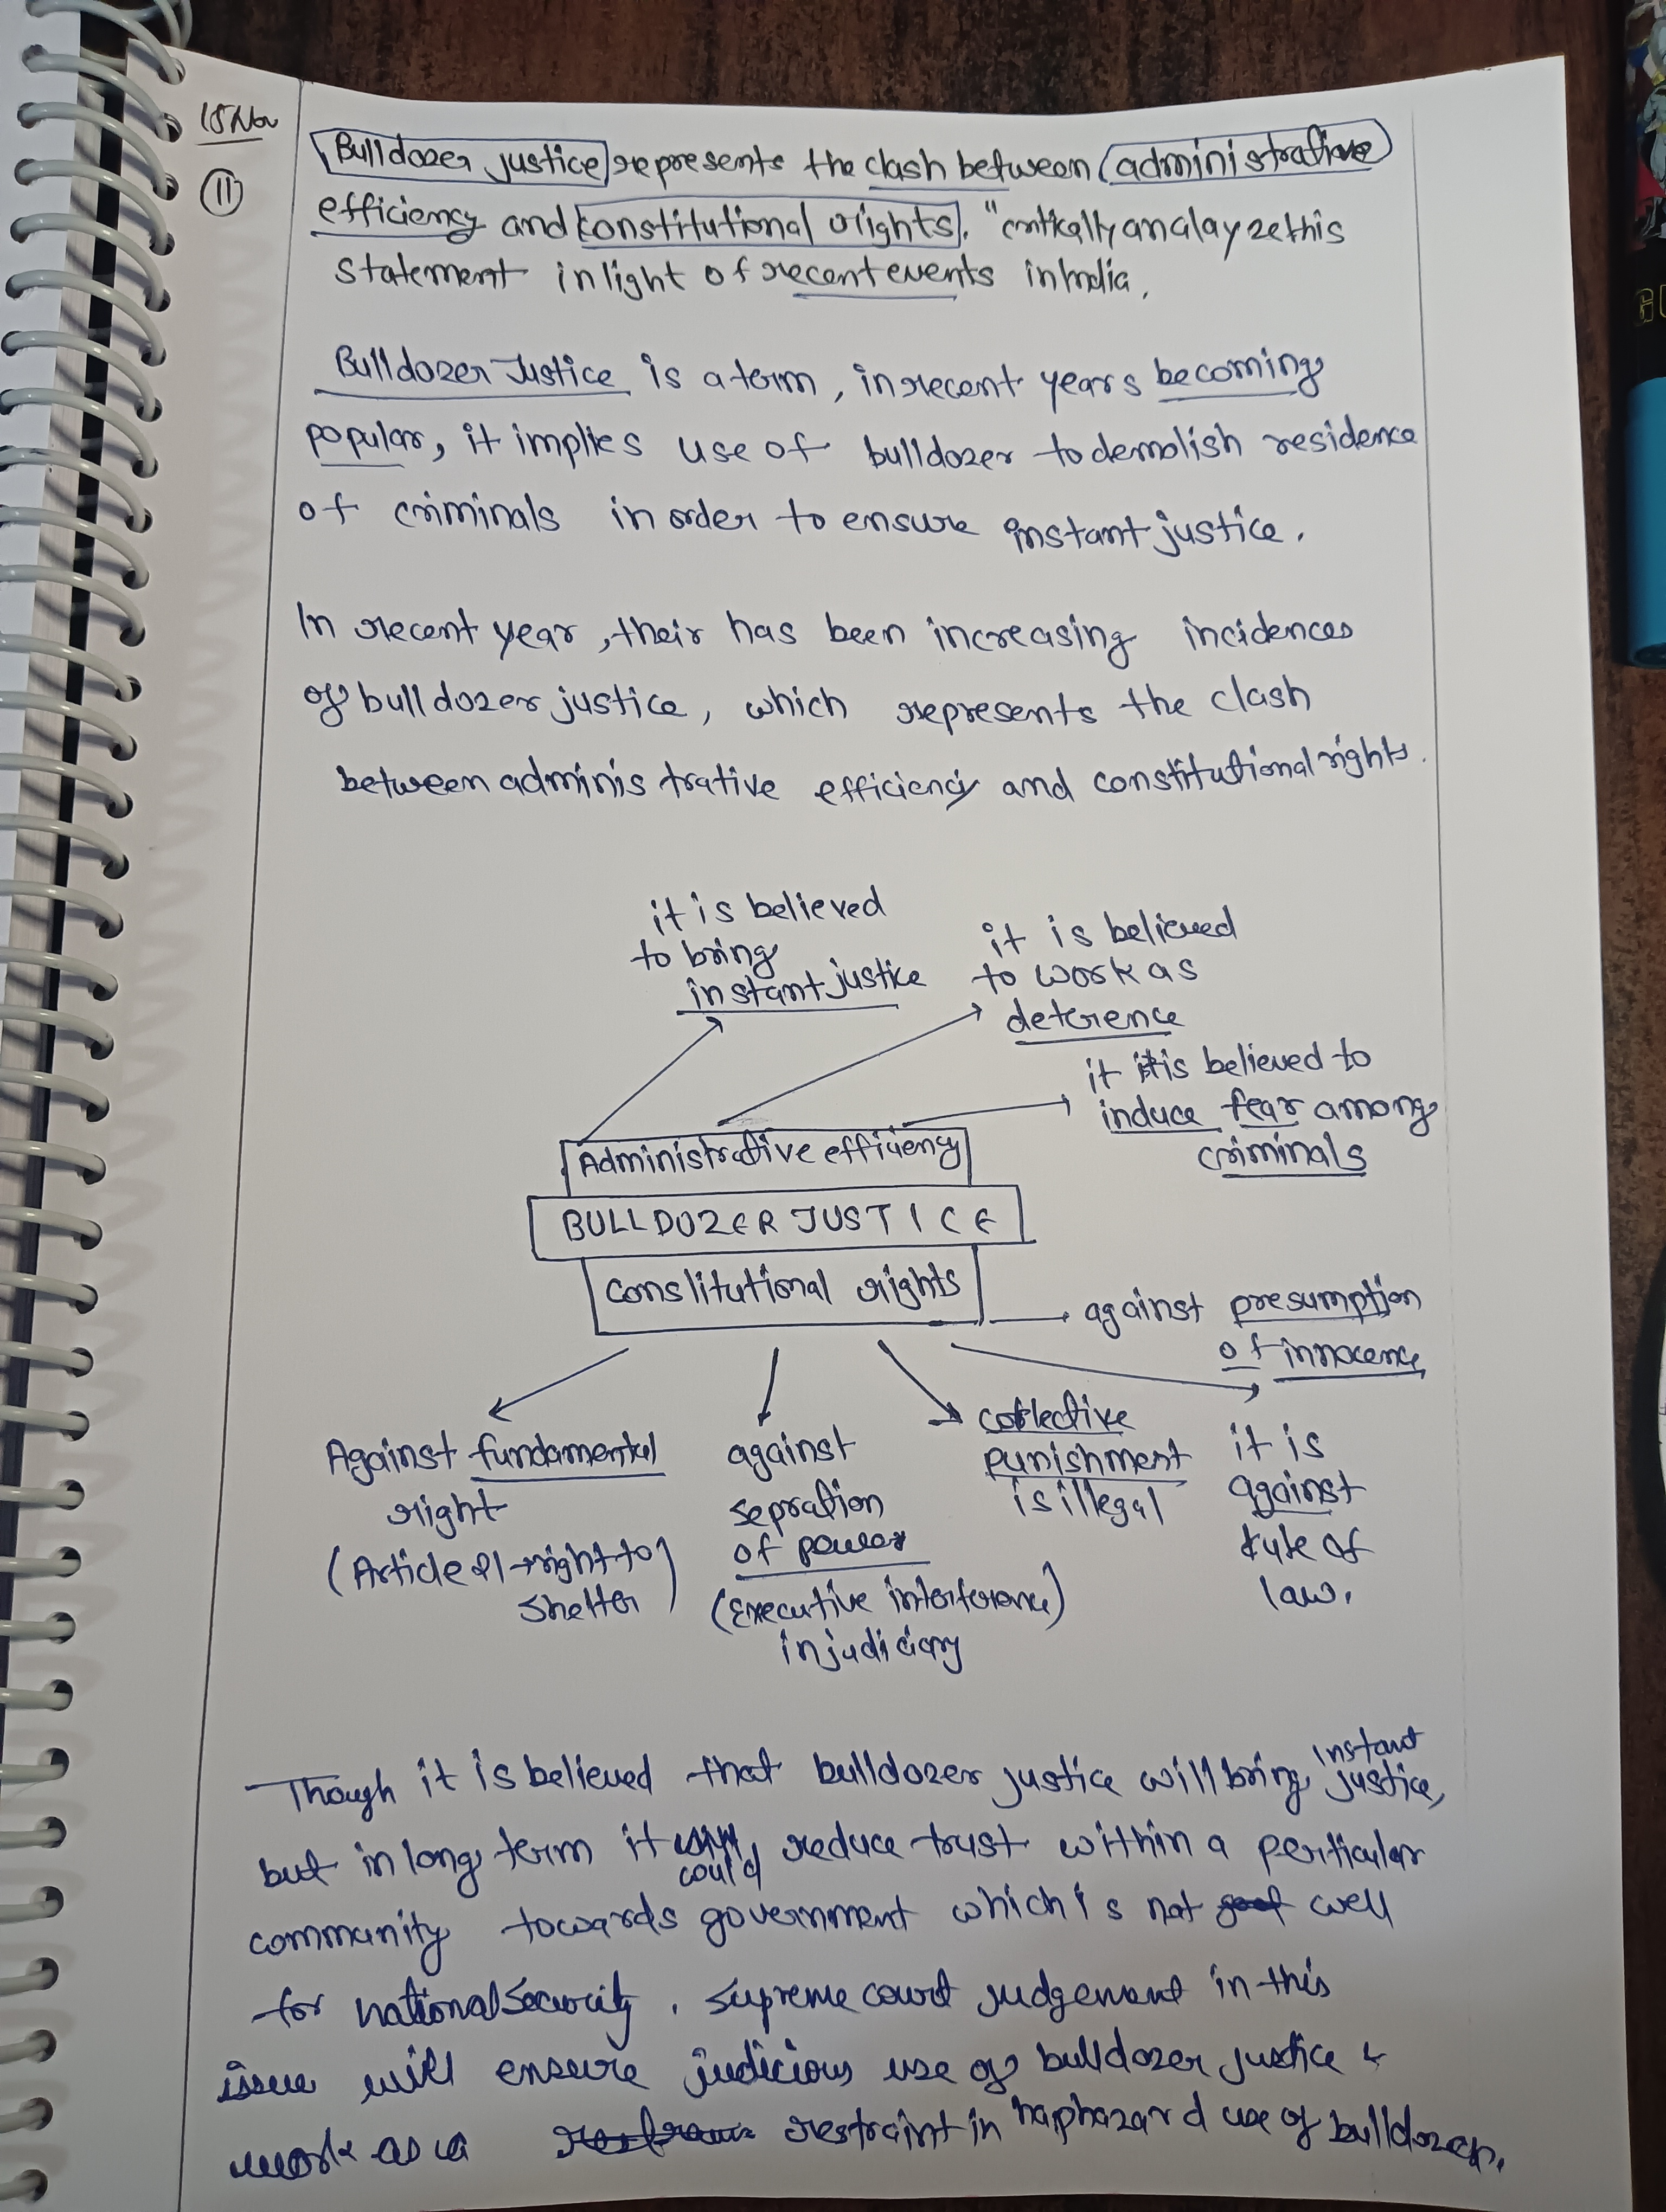 15 Nov
11
Bulldozer justice represents the clash between administrative
efficiency and constitutional rights. "critically analayze this
statement in light of recent events in India.
Bulldozer Justice is a term, in recent years becoming
popular, it implies use of bulldozer to demolish residence
of criminals in order to ensure instant justice.
In recent year, their has been increasing incidences
of bulldozer justice, which represents the clash
between administrative efficiency and constitutional rights.
it is believed
to bring
instant justice
it is believed
to work as
deterence
it is believed to
induce fear among
criminals
Administrative efficieny
BULLDOZER JUSTICE
Constitutional rights
against presumption
of innocence
Against fundamental
right
(Article 21→right to
shelter)
against
sepration
of power
(Executive interference)
in judiciary
collective
punishment
is illegal
it is
against
rule of
law.
Though it is believed that bulldozer justice will bring instant justice,
but in long term it could reduce trust within a perticular
community towards government which is not well
for national security. Supreme court judgement in this
issue will ensure judicious use of bulldozer justice &
work as a restraint in haphazard use of bulldozer.